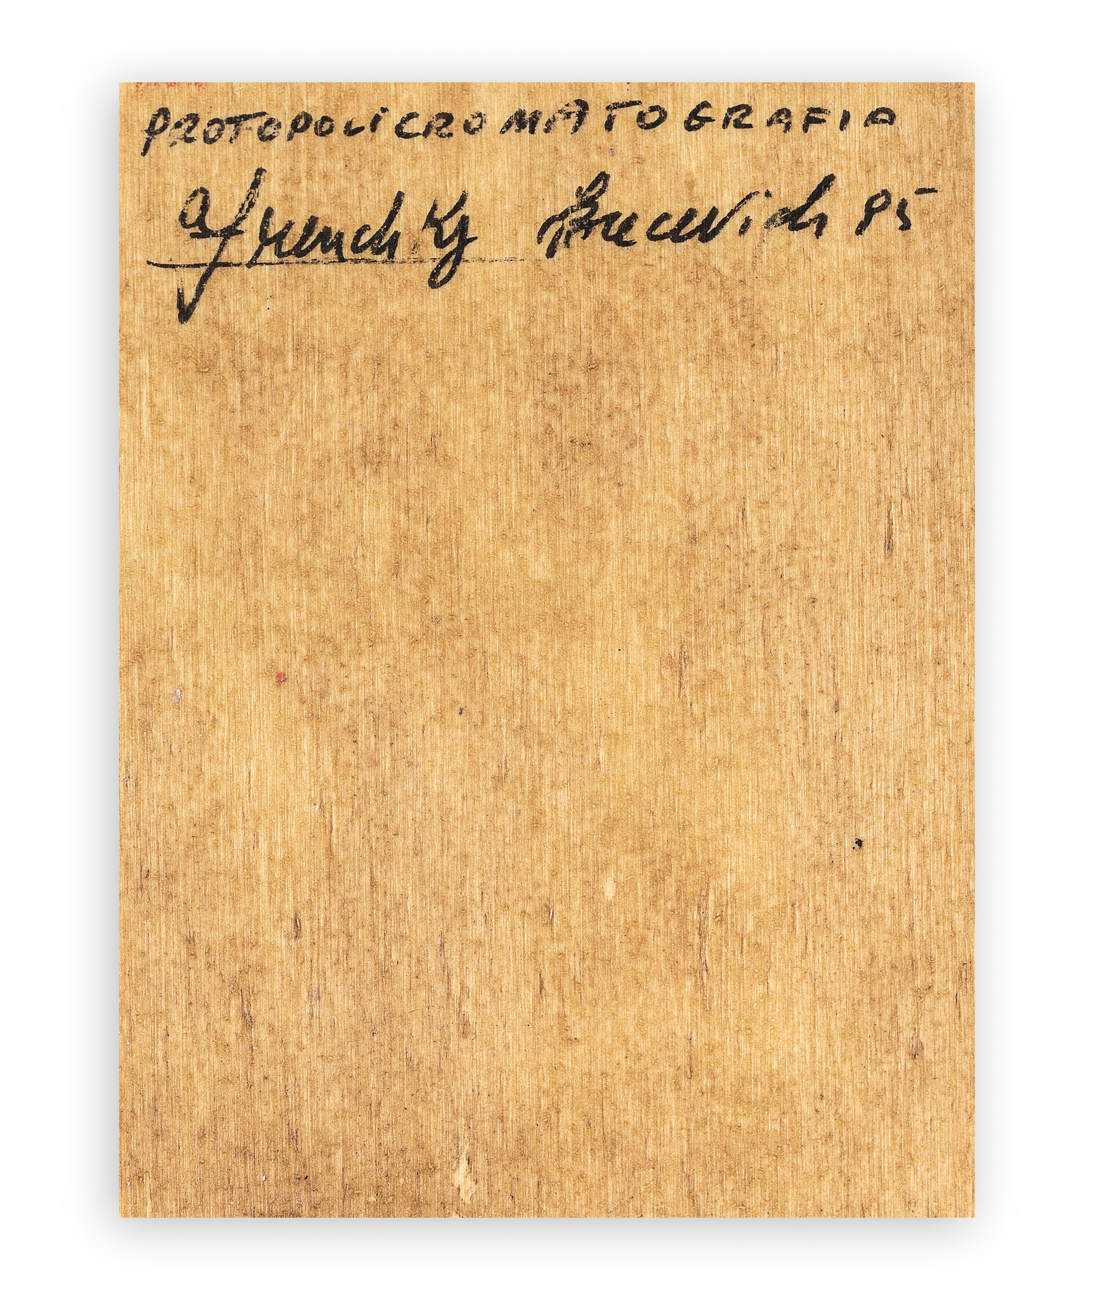 PROTOPOLICROMATOGRAFIA
afrenchky Brecevich 85